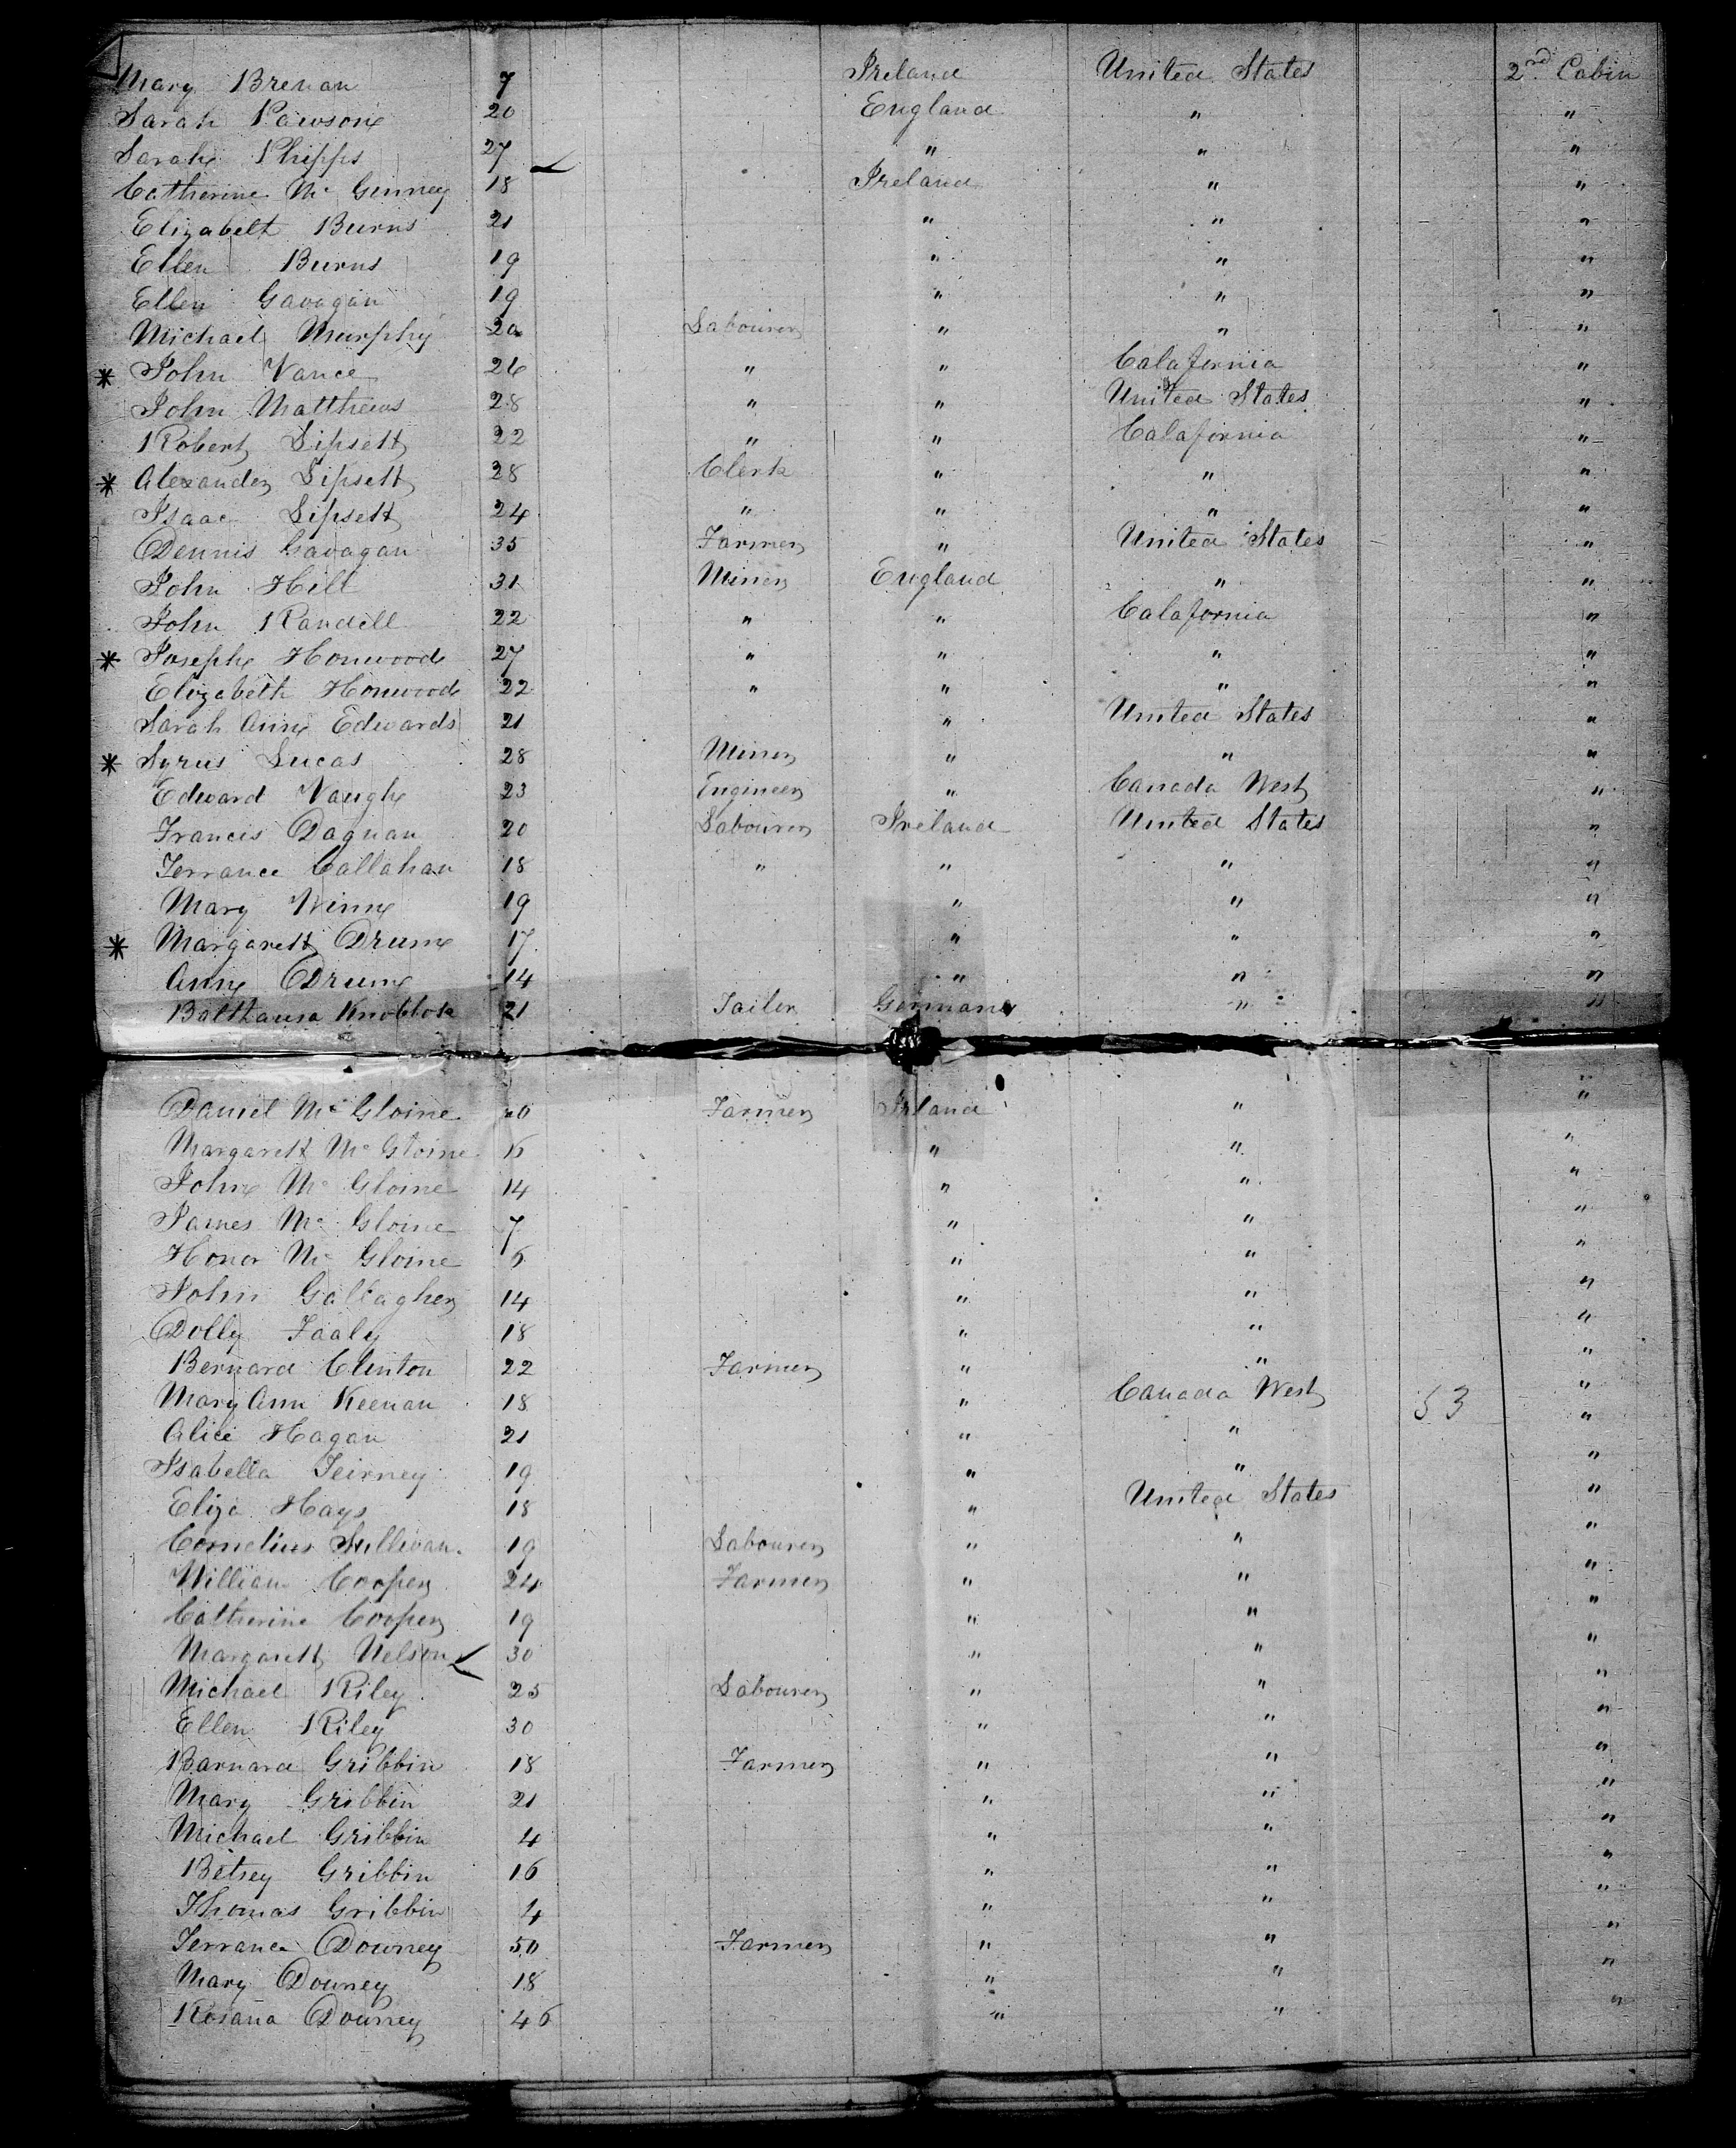 Mary Brenan 7 Ireland United States 2nd Cabin
Sarah Pawson 20 England " "
Sarah Phipps 27 " " "
Catherine Mc Genney 18 Ireland " "
Elizabeth Burns 21 " " "
Ellen Burns 19 " " "
Ellen Gavagan 19 " " "
Michael Murphy 20 Labourer " " "
* John Vance 26 " " Calafornia "
John Matthews 28 " " United States "
Robert Lipsett 22 " " Calafornia "
* Alexander Lipsett 28 Clerk " " "
Isaac Lipsett 24 " " " "
Dennis Gavagan 35 Farmer " United States "
John Hill 31 Miner England " "
John Randell 22 " " Calafornia "
* Joseph Honwood 27 " " " "
Elizabeth Honwood 22 " " " "
Sarah Ann Edwards 21 " United States "
* Syrus Lucas 28 Miner " " "
Edward Vaugh 23 Engineer " Canada West "
Francis Dagnan 20 Labourer Ireland United States "
Terrance Callahan 18 " " " "
Mary Winn 19 " " "
* Margarett Drum 17 " " "
Ann Drum 14 " " "
Balthausa Knoblok 21 Tailor Germany " "
"
Daniel Mc Gloine 20 Farmer Irland " "
Margarett Mc Gloine 16 " " "
John Mc Gloine 14 " " "
James Mc Gloine 7 " " "
Honor Mc Gloine 6 " " "
John Gallagher 14 " " "
Dolly Faaly 18 " " "
Bernard Clinton 22 Farmer " " "
Mary Ann Keenan 18 " Canada West 53 "
Alice Hagan 21 " " "
Isabella Teirney 19 " " "
Eliza Hays 18 " United States "
Cornelius Sullivan 19 Labourer " " "
William Cooper 24 Farmer " " "
Catherine Cooper 19 " " "
Margarett Nelson 30 " " "
Michael Riley 25 Labourer " " "
Ellen Riley 30 " " "
Barnard Gribbin 18 Farmer " " "
Mary Gribbin 21 " " "
Michael Gribbin 4 " " "
Betsey Gribbin 16 " " "
Thomas Gribbin 4 " " "
Terrance Downey 50 Farmer " " "
Mary Downey 18 " " "
Rosana Downey 46 " " "